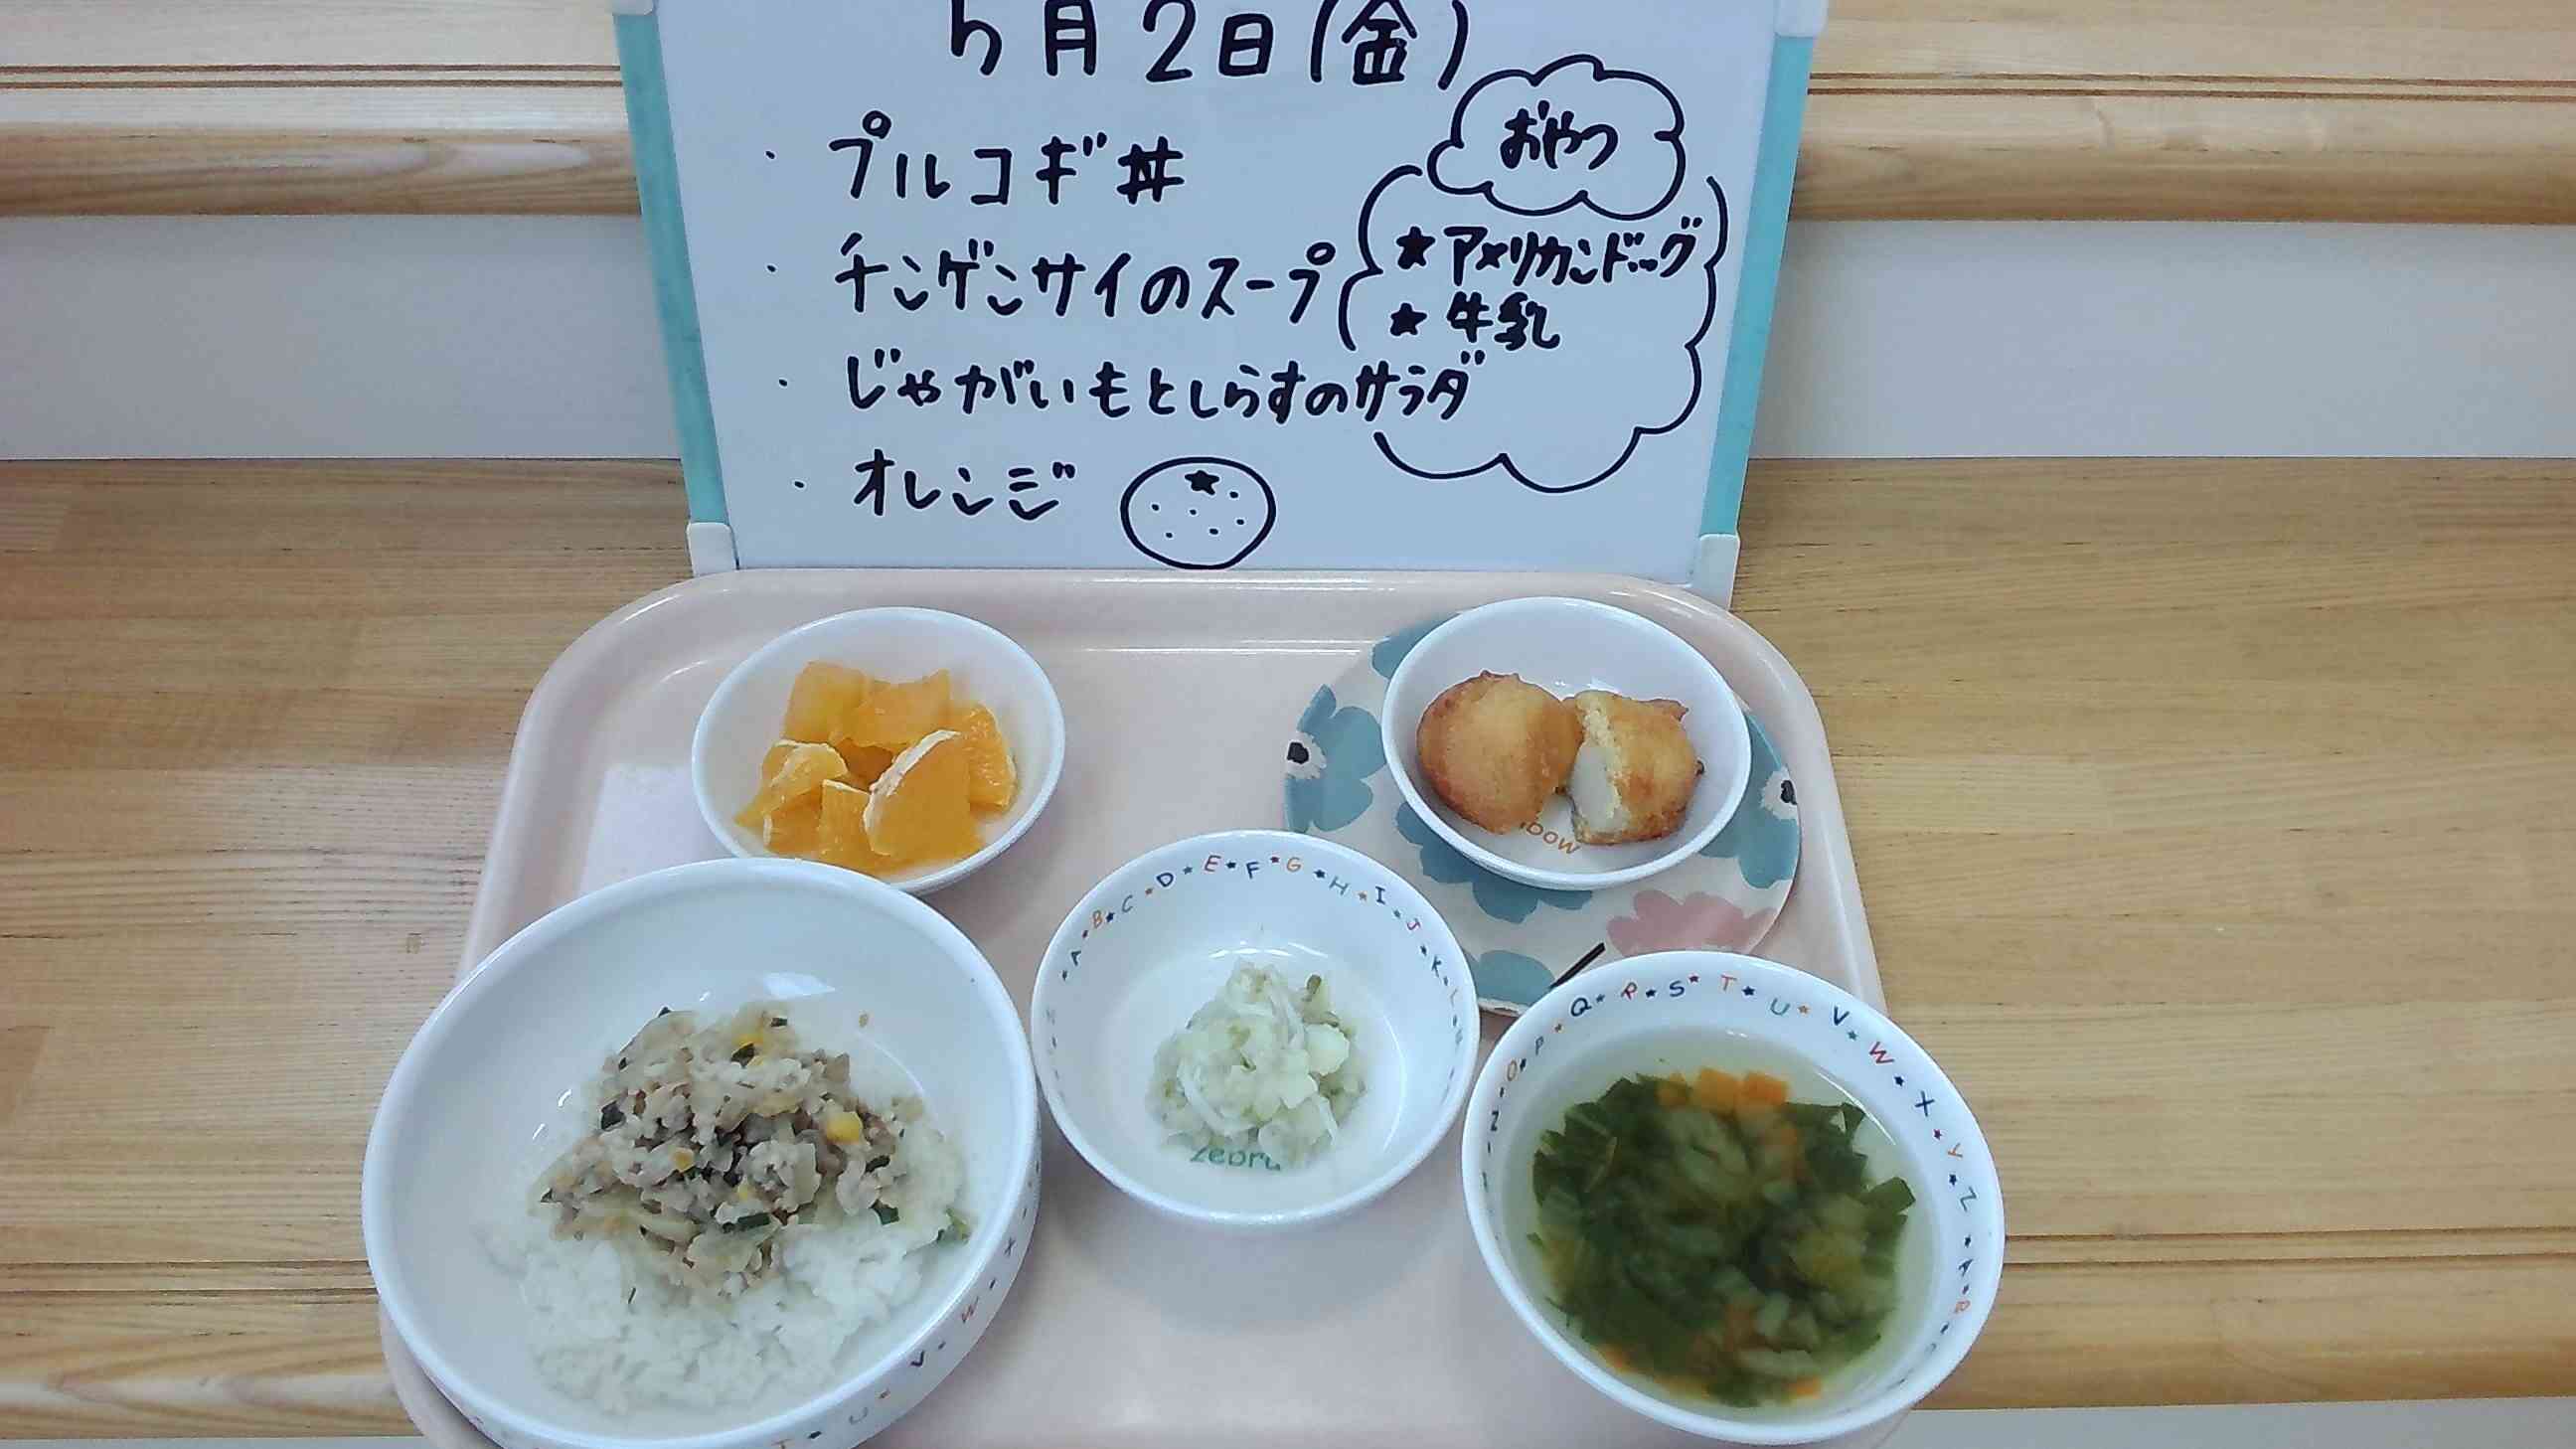 5月2日(金)
・プルコギ丼
・チンゲンサイのスープ
・じゃがいもとしらすのサラダ
・オレンジ
おやつ
★アメリカンドッグ
★牛乳
A★B★C★D★E★F★G★H★I★J★K★L
N★O★P★Q★R★S★T★U★V★W★X★Y★Z★A★B
T★U★V★W★X